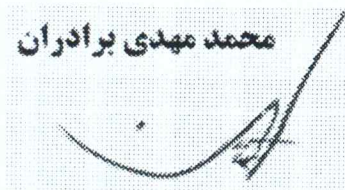 محمد مهدی برادران